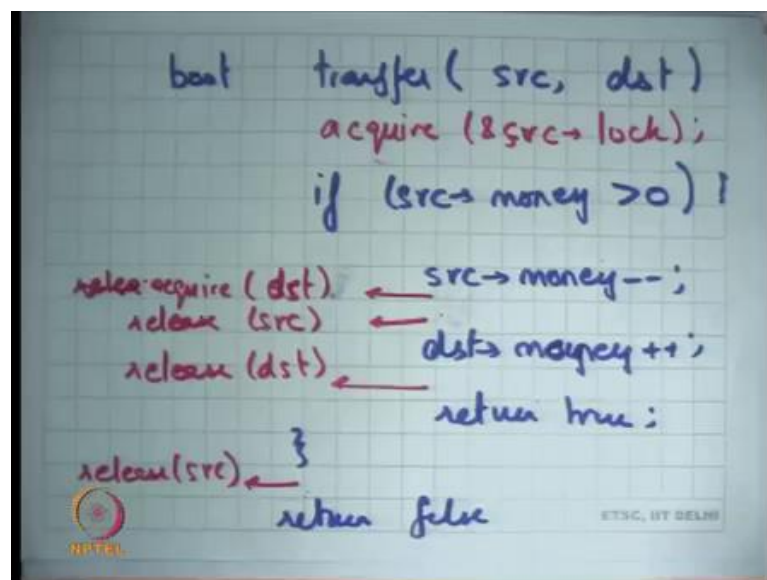 bool transfer( src, dst)
acquire (&src→ lock);
if (src→ money >0) {
acquire (dst) ← src→ money--;
release (src) ←
dst→ money ++;
release (dst) ←
return true;
}
release(src) ←
return false
ETSC, IIT DELHI
NPTEL